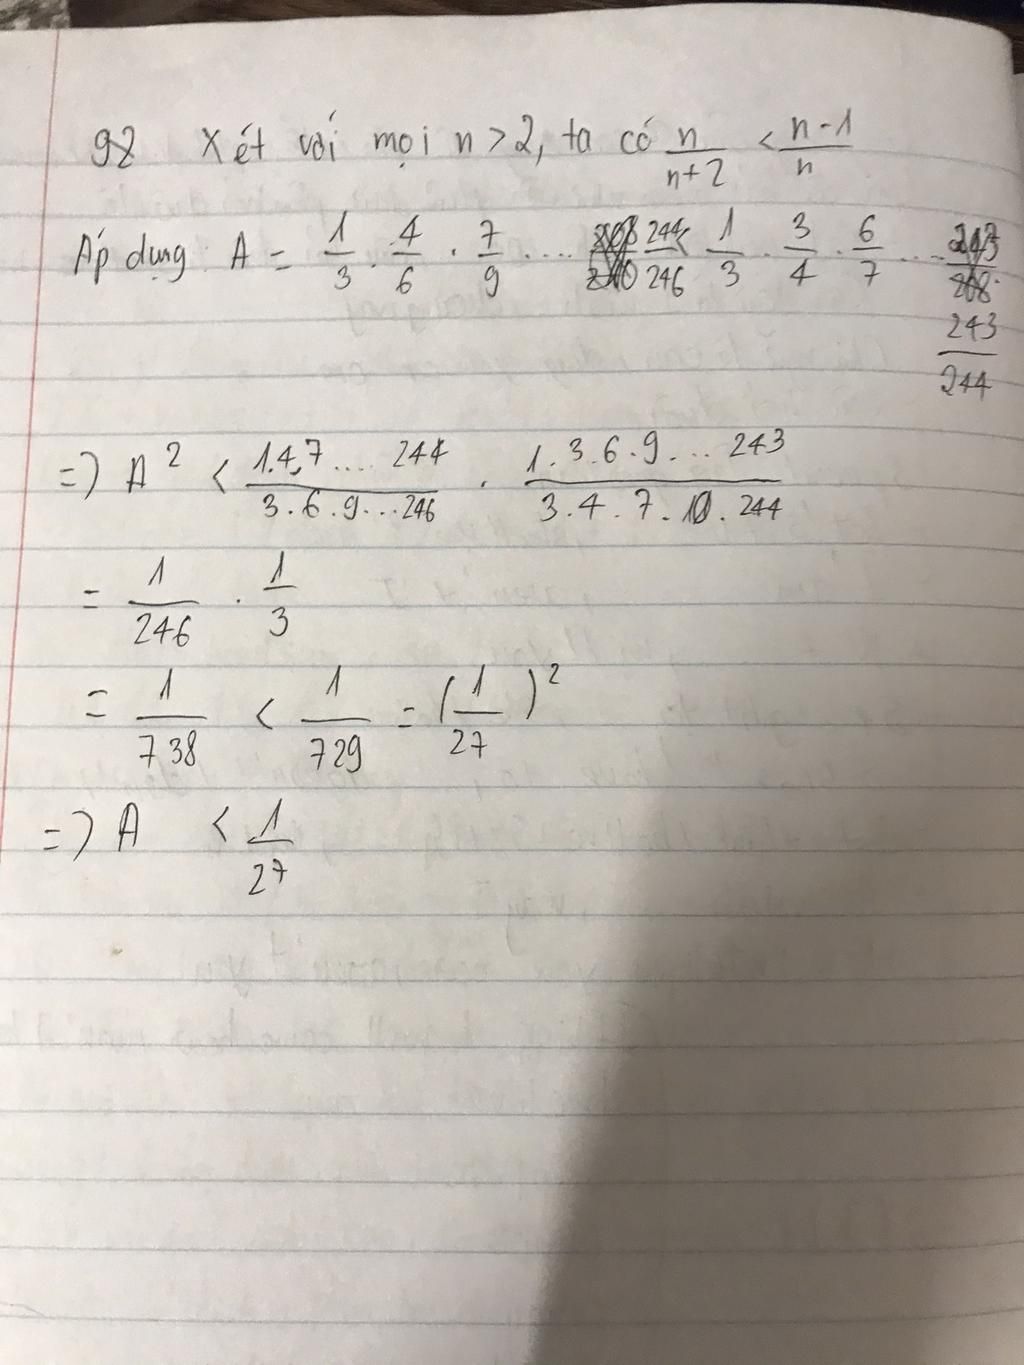 98 Xét với mọi n > 2, ta có n/(n+2) < (n-1)/n
Áp dụng: A = 1/3 . 4/6 . 7/9 .... 244/246 < 1/3 . 3/4 . 6/7 ... 243/244
=) A² < (1.4.7 .... 244)/(3.6.9...246) . (1.3.6.9... 243)/(3.4.7.10.244)
= 1/246 . 1/3
= 1/738 < 1/729 = (1/27)²
=) A < 1/27